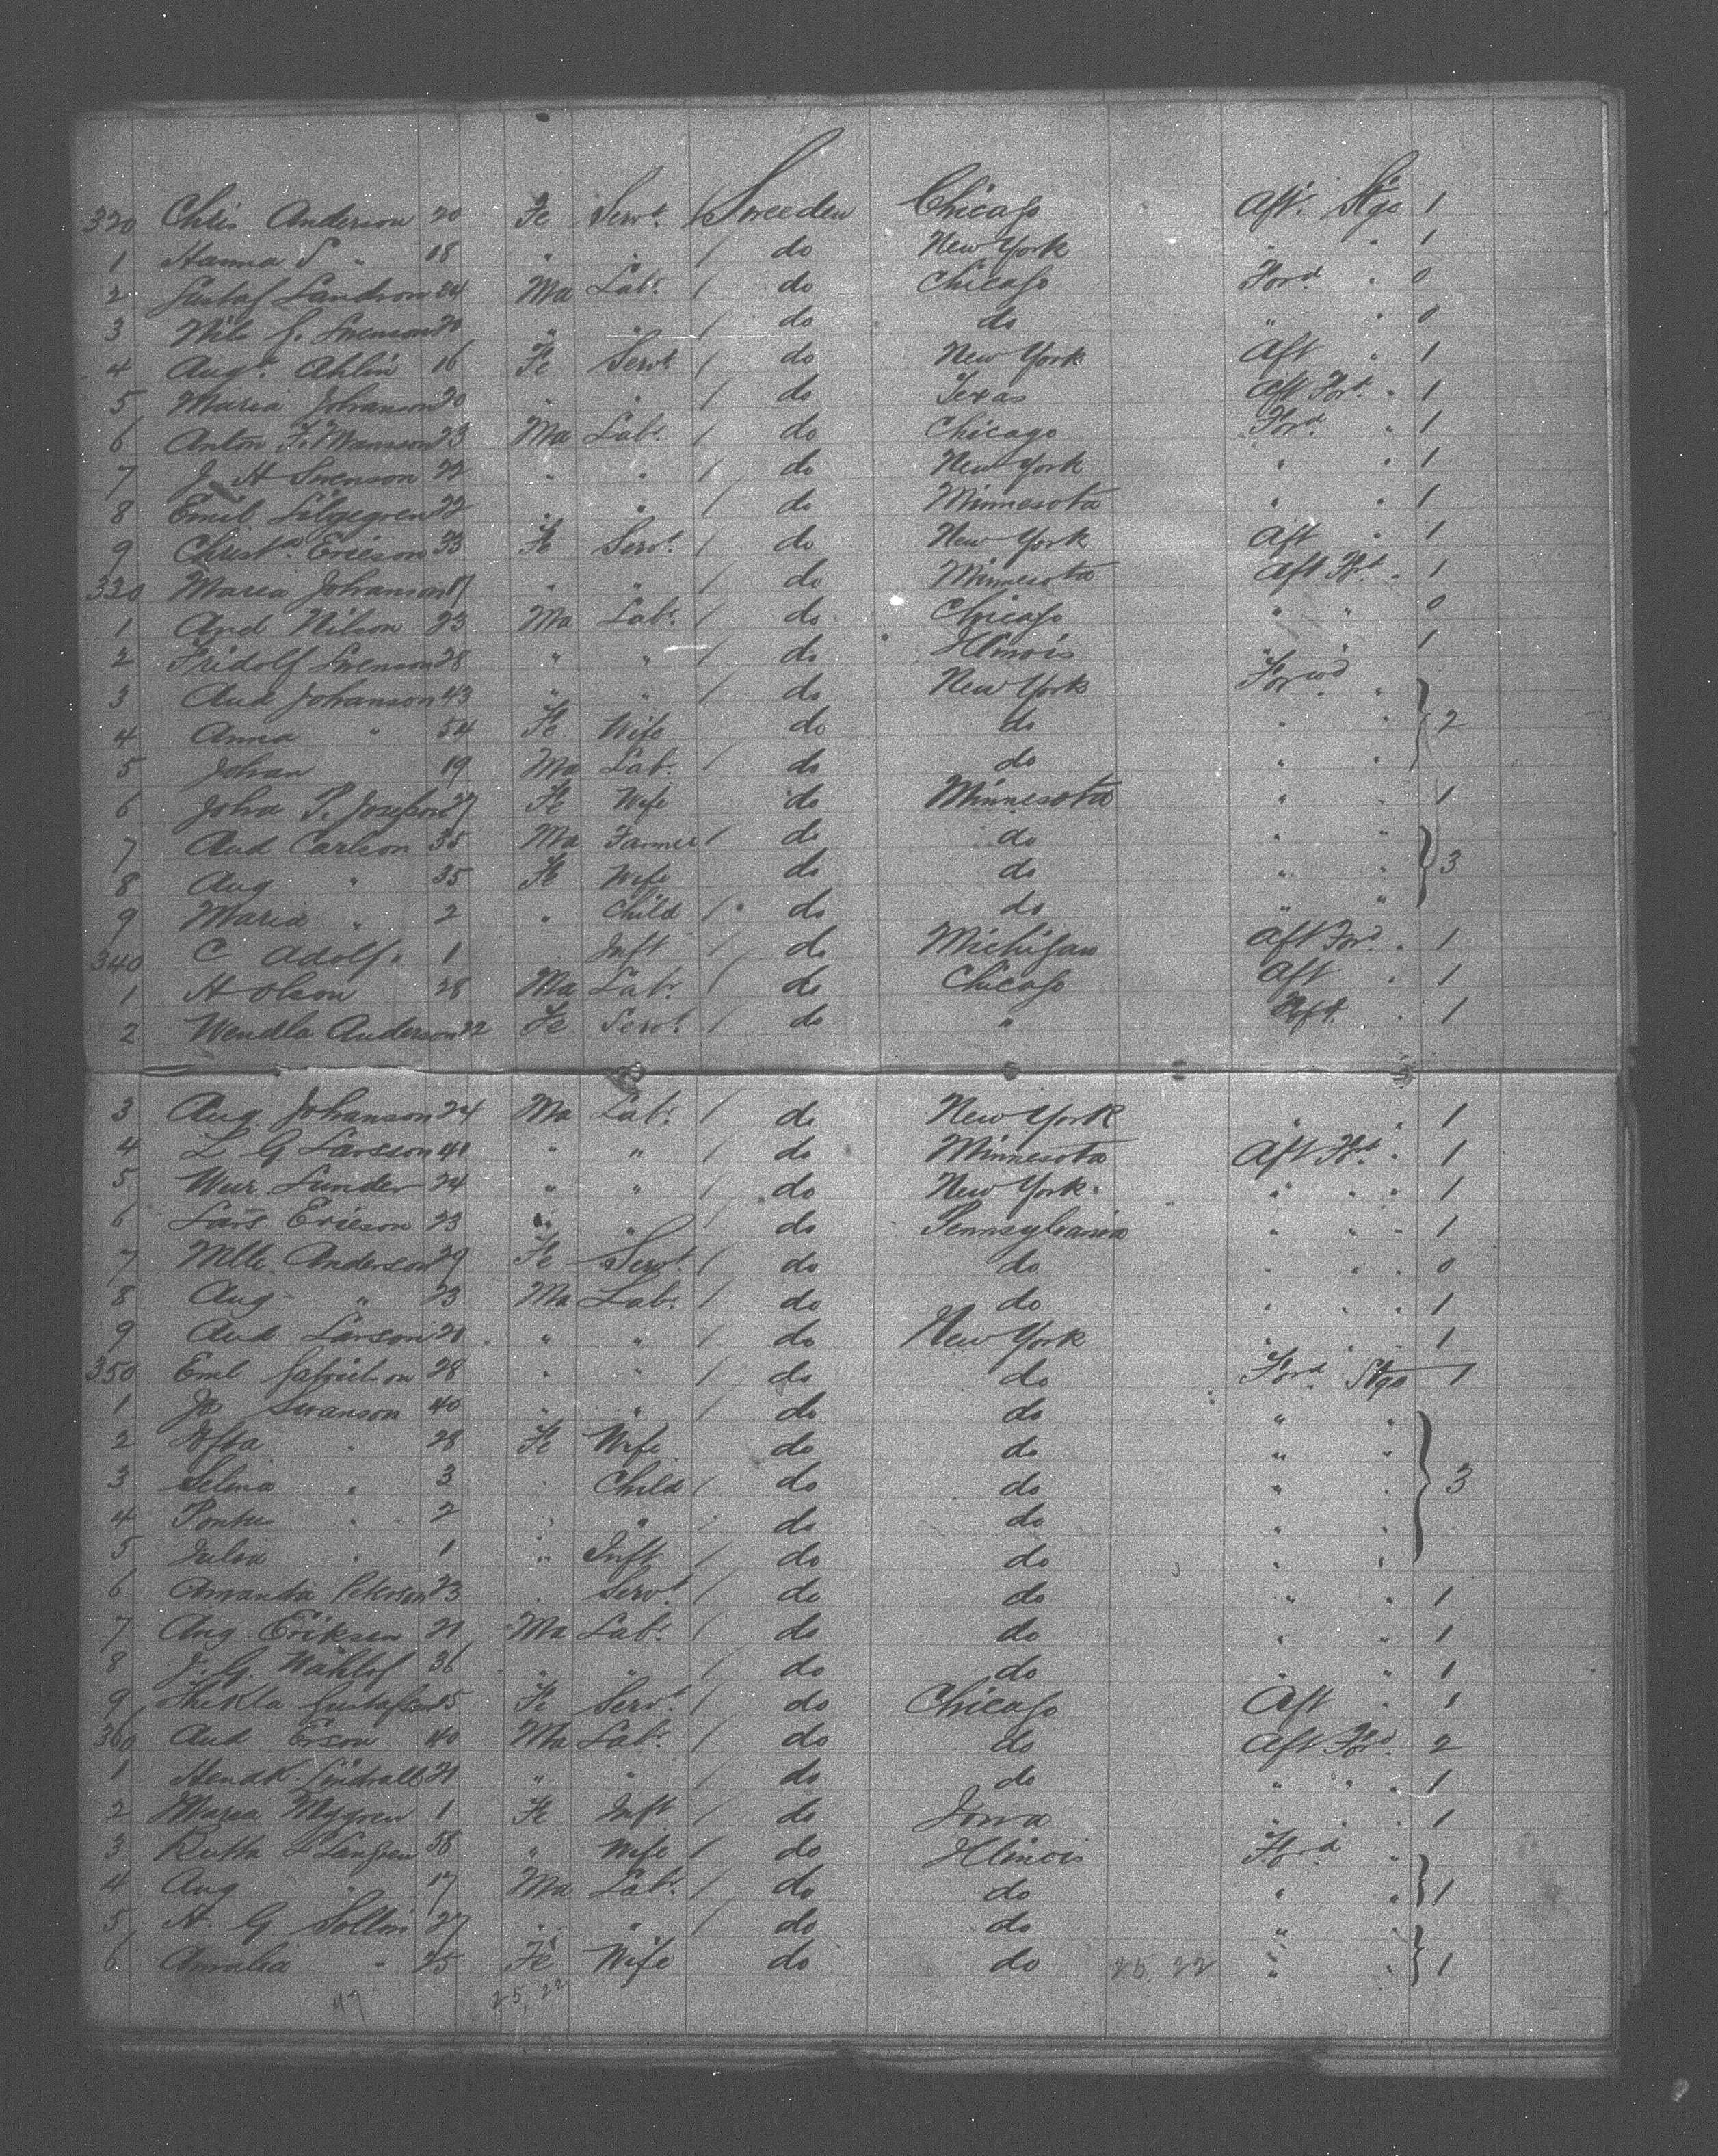 320 Chris Anderson 20 Fe Servt. / Sweeden Chicago Aft. Stge 1
1 Hanna S " 18 " " / do New York " " 1
2 Gustaf Landson 34 Ma Labr. / do Chicago Ford. " 0
3 Nils J. Swenson 20 " " / do do " " 0
4 Augt. Ahlin 16 Fe Servt / do New York Aft " 1
5 Maria Johanson 20 " " / do Texas Aft Ford. " 1
6 Anton F. Manson 23 Ma Labr. / do Chicago Ford. " 1
7 J H Swenson 22 " " / do New York " " 1
8 Emil Liljegren 22 " " / do Minnesota " " 1
9 Christa. Ericson 33 Fe Servt. / do New York Aft " 1
330 Maria Johanson 17 " " / do Minnesota Aft Fd. " 1
1 And Nilson 23 Ma Labr. / do Chicago " " 0
2 Fridolf Swenson 28 " " / do Illinois " " 1
3 And Johanson 43 " " / do New York Forwd. "
4 Anna " 54 Fe Wife do do " " } 2
5 Johan 19 Ma Labr. / do do " "
6 Joha P. Josefson 27 Fe Wife do Minnesota " " 1
7 And Carlson 35 Ma Farmer / do do " "
8 Aug " 35 Fe Wife do do " " } 3
9 Maria " 2 " Child / do do " "
340 C Adolf " 1 Inft / do Michigan Aft Ford. " 1
1 H Olson 28 Ma Labr. / do Chicago Aft " 1
2 Wendla Anderson 22 Fe Servt. / do " " 1
3 Aug. Johanson 24 Ma Labr. / do New York " " 1
4 L G Larsson 41 " " / do Minnesota Aft Fd. " 1
5 Lunder 24 " " / do New York. " " " 1
6 Lars. Ericson 23 " " / do Pennsylvania " " " 1
7 Anderson 29 Fe Servt. / do do " " " 0
8 Aug " 23 Ma Labr. / do do " " " 1
9 And Larson 21 " " / do New York " " " 1
350 Eml Gabrielson 28 " " / do do Ford. Stge 1
1 Jos Swanson 40 " " / do do " "
2 " 28 Fe Wife do do " "
3 Selina " 3 " Child / do do " " } 3
4 Pontus " 2 " " / do do " "
5 Julia " 1 " Inft / do do " "
6 Amanda Peterson 23 " Servt. / do do " " 1
7 Aug Eriksen 21 Ma Labr. / do do " " 1
8 J. G. Wahlof 36 " " / do do " " 1
9 Thekla Gustafson 25 Fe Servt. / do Chicago Aft " 1
360 And Erson 40 Ma Labr. / do do Aft Ford. 2
1 Hendk. Lindvall 21 " " / do do " " " 1
2 Maria Nygren 1 Fe Inft / do Iowa " " 1
3 58 " Wife / do Illinois Ford. "
4 Aug " 17 Ma Labr. / do do " " } 1
5 A. G. 27 " " / do do " "
6 Amalia " 25 Fe Wife do do 25, 22 " " } 1
47 25, 22